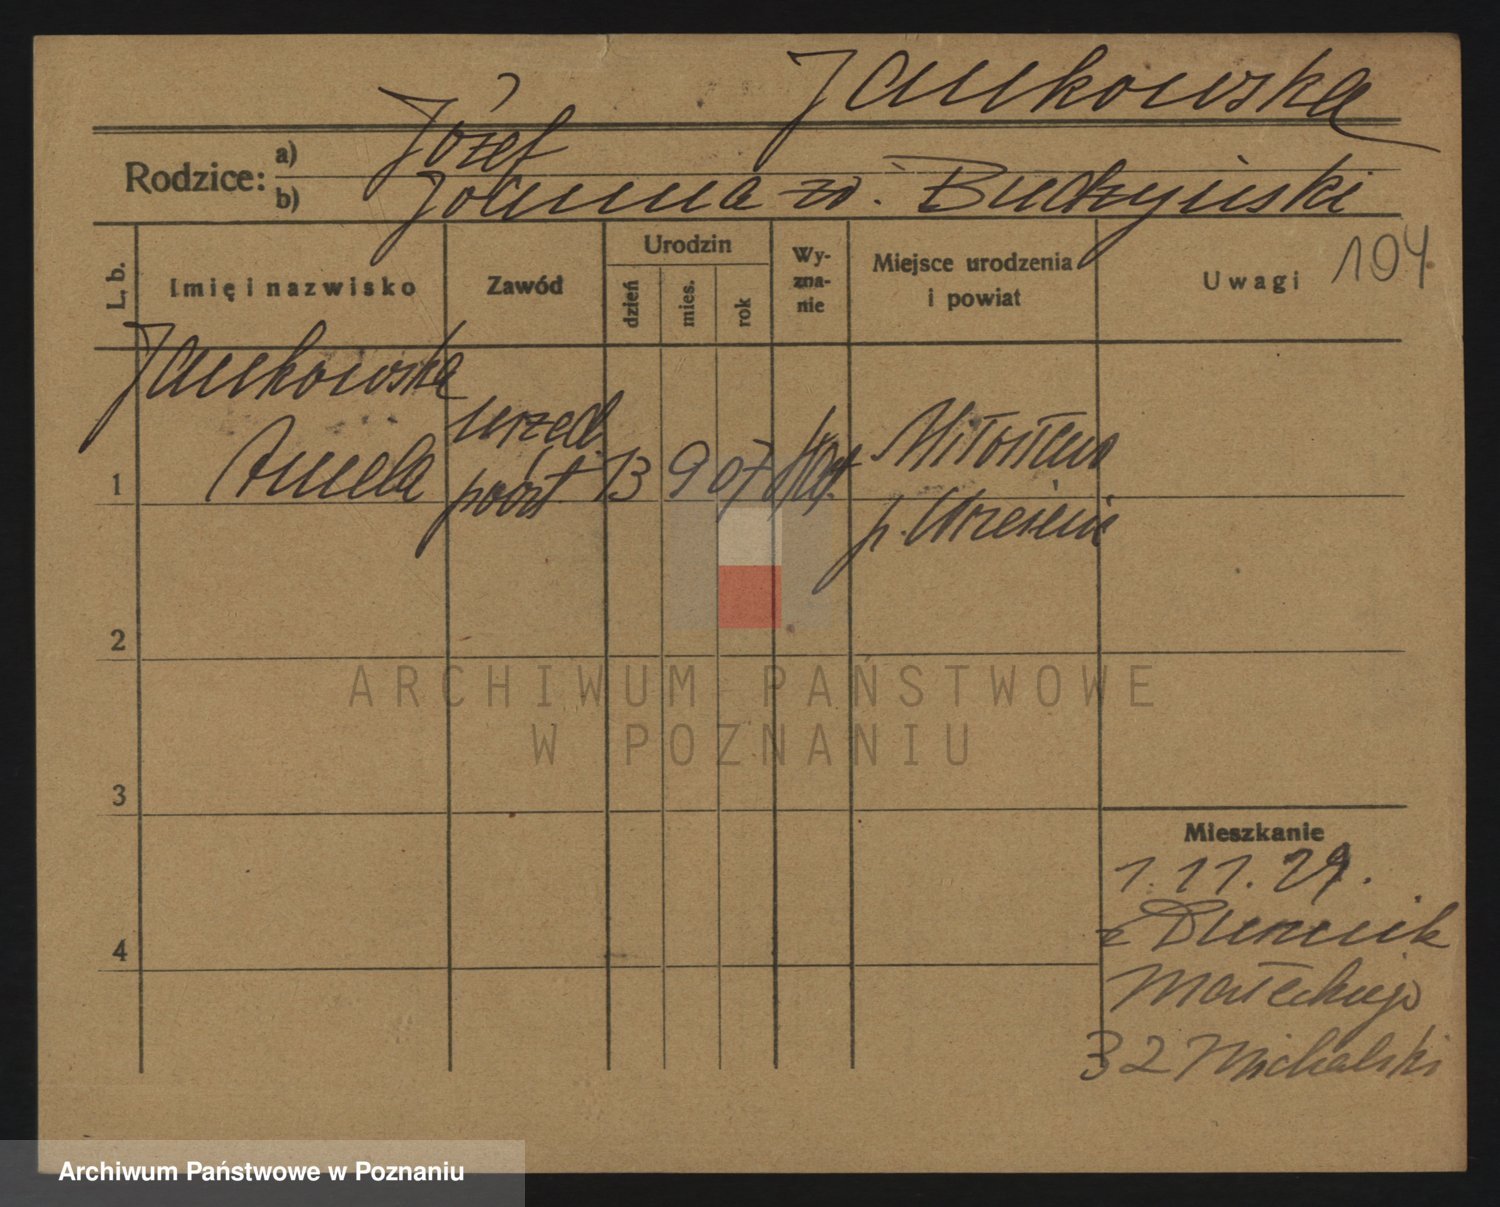 Jankowska
Rodzice: a) Józef
b) Joanna zd. Budzyński
L. b. Imię i nazwisko Zawód Urodzin dzień mies. rok Wy-zna-nie Miejsce urodzenia i powiat Uwagi 104
Jankowska
1 Aniela urzęd. 13 9 07 kat. Miłosław
p. Września
2
3
4
Mieszkanie
1.11.29.
z
Małeckiego
32 Michalski
ARCHIWUM PAŃSTWOWE
W POZNANIU
Archiwum Państwowe w Poznaniu